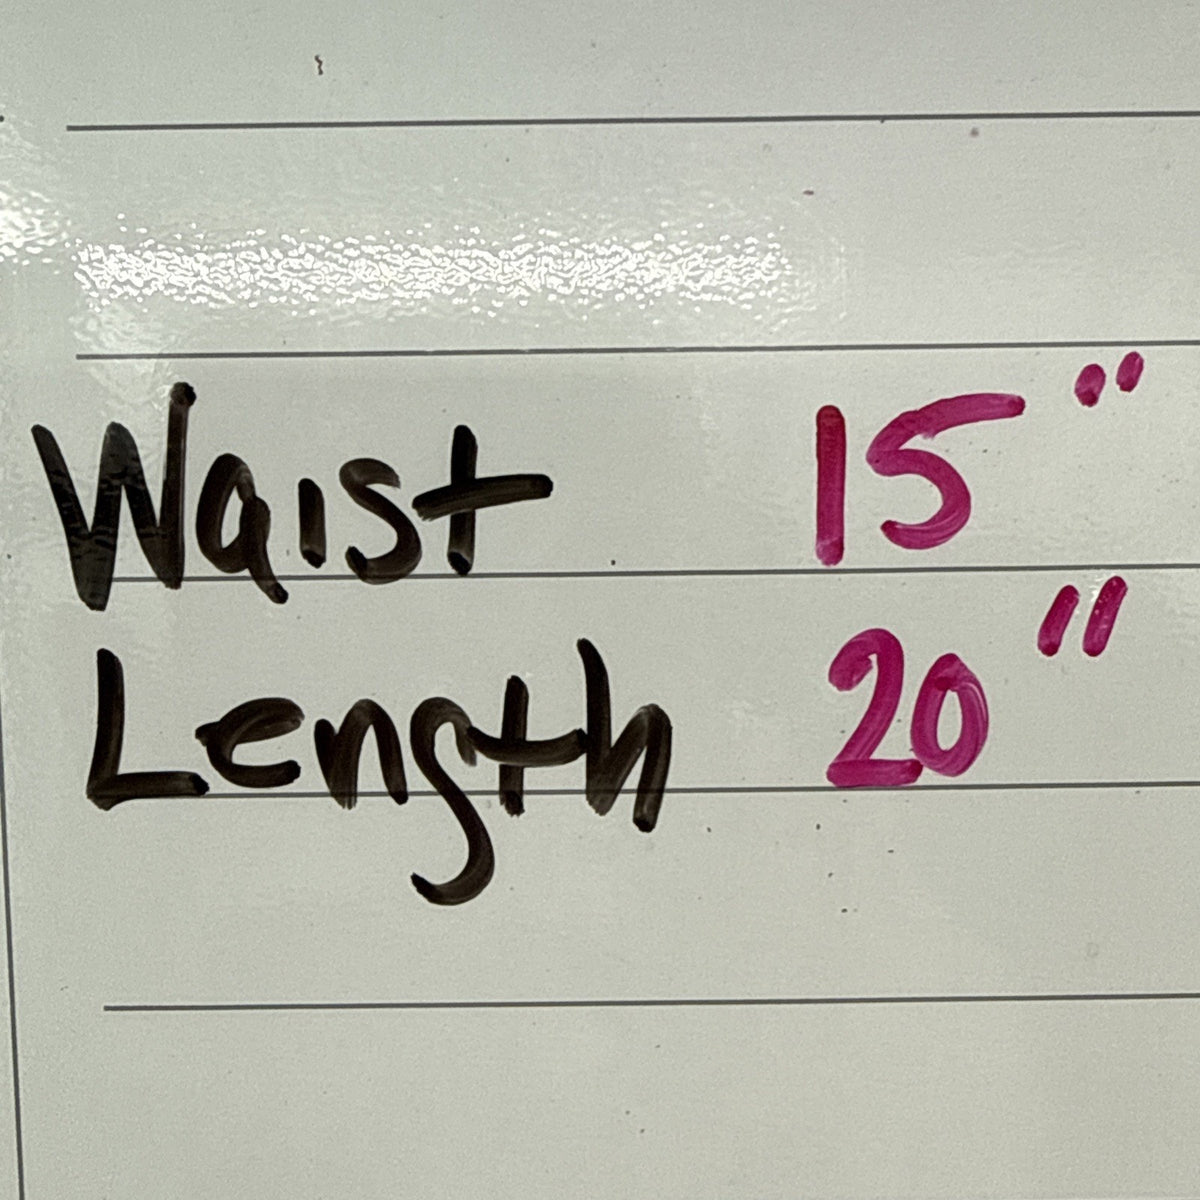 Waist 15"
Length 20"